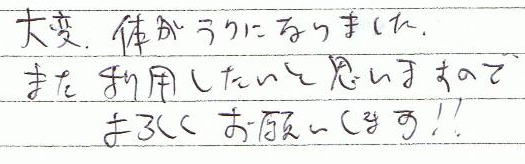 大変、体がらくになりました。
また利用したいと思いますので
よろしくお願いします!!